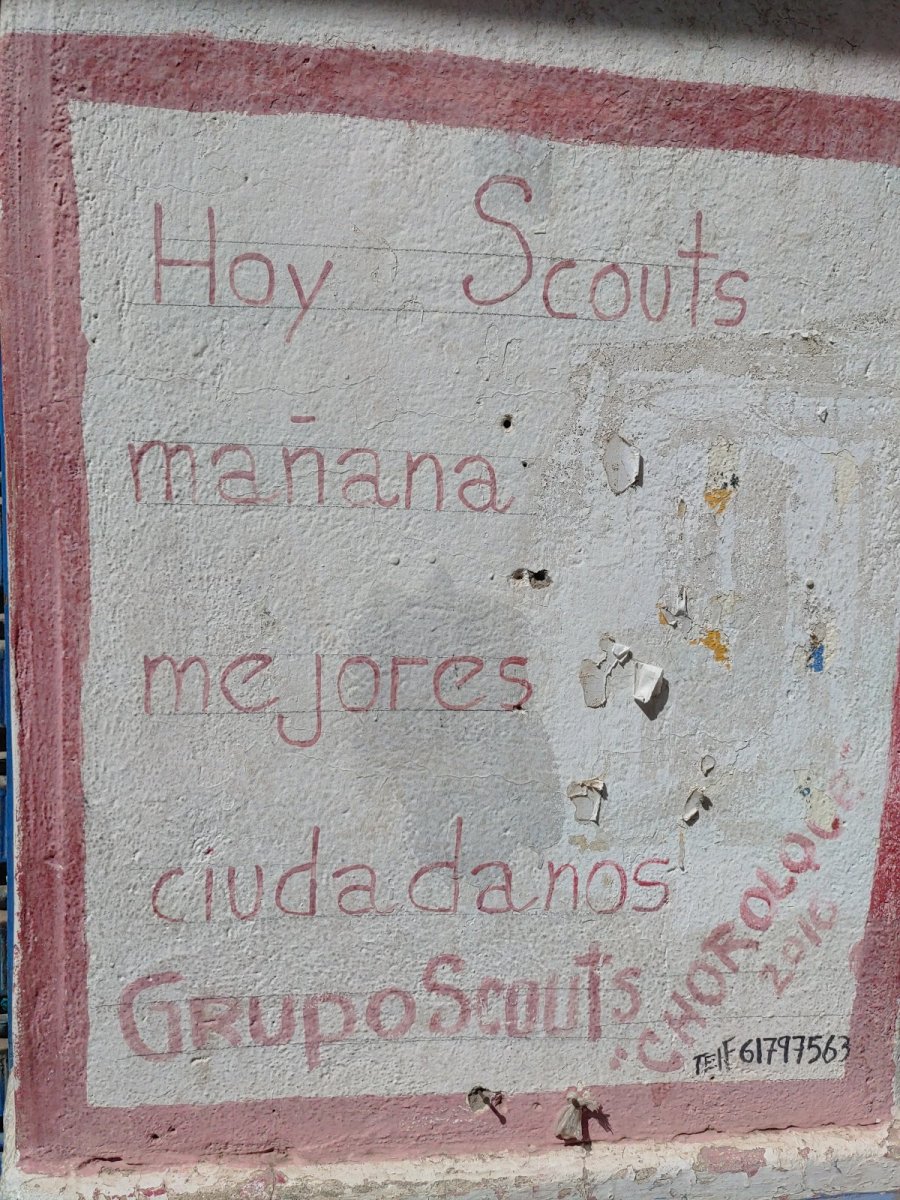 Hoy Scouts
mañana
mejores
ciudadanos
GRUPO SCOUTS
"CHOROLQUE"
2016
TElF 61797563